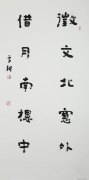 徵文北窗外
借月南樓中